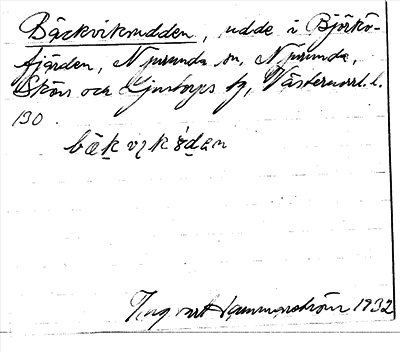 Bäckviksudden, udde i Björkö-
fjärden, Njurunda sn, Njurunda,
Sköns och Ljustorps tg, Västernorrl. l.
130.
bäk vik
Ingvart Hammarström 1932